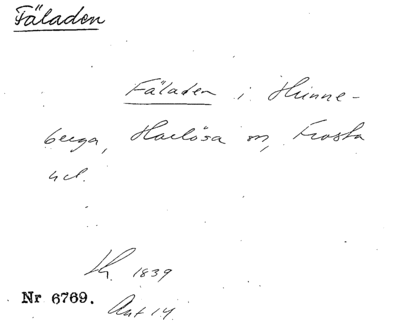 Fäladen
Fäladen i Hunne-
berga, Harlösa sn, Frosta
hd.
1839
Nr 6769.
Ant 14